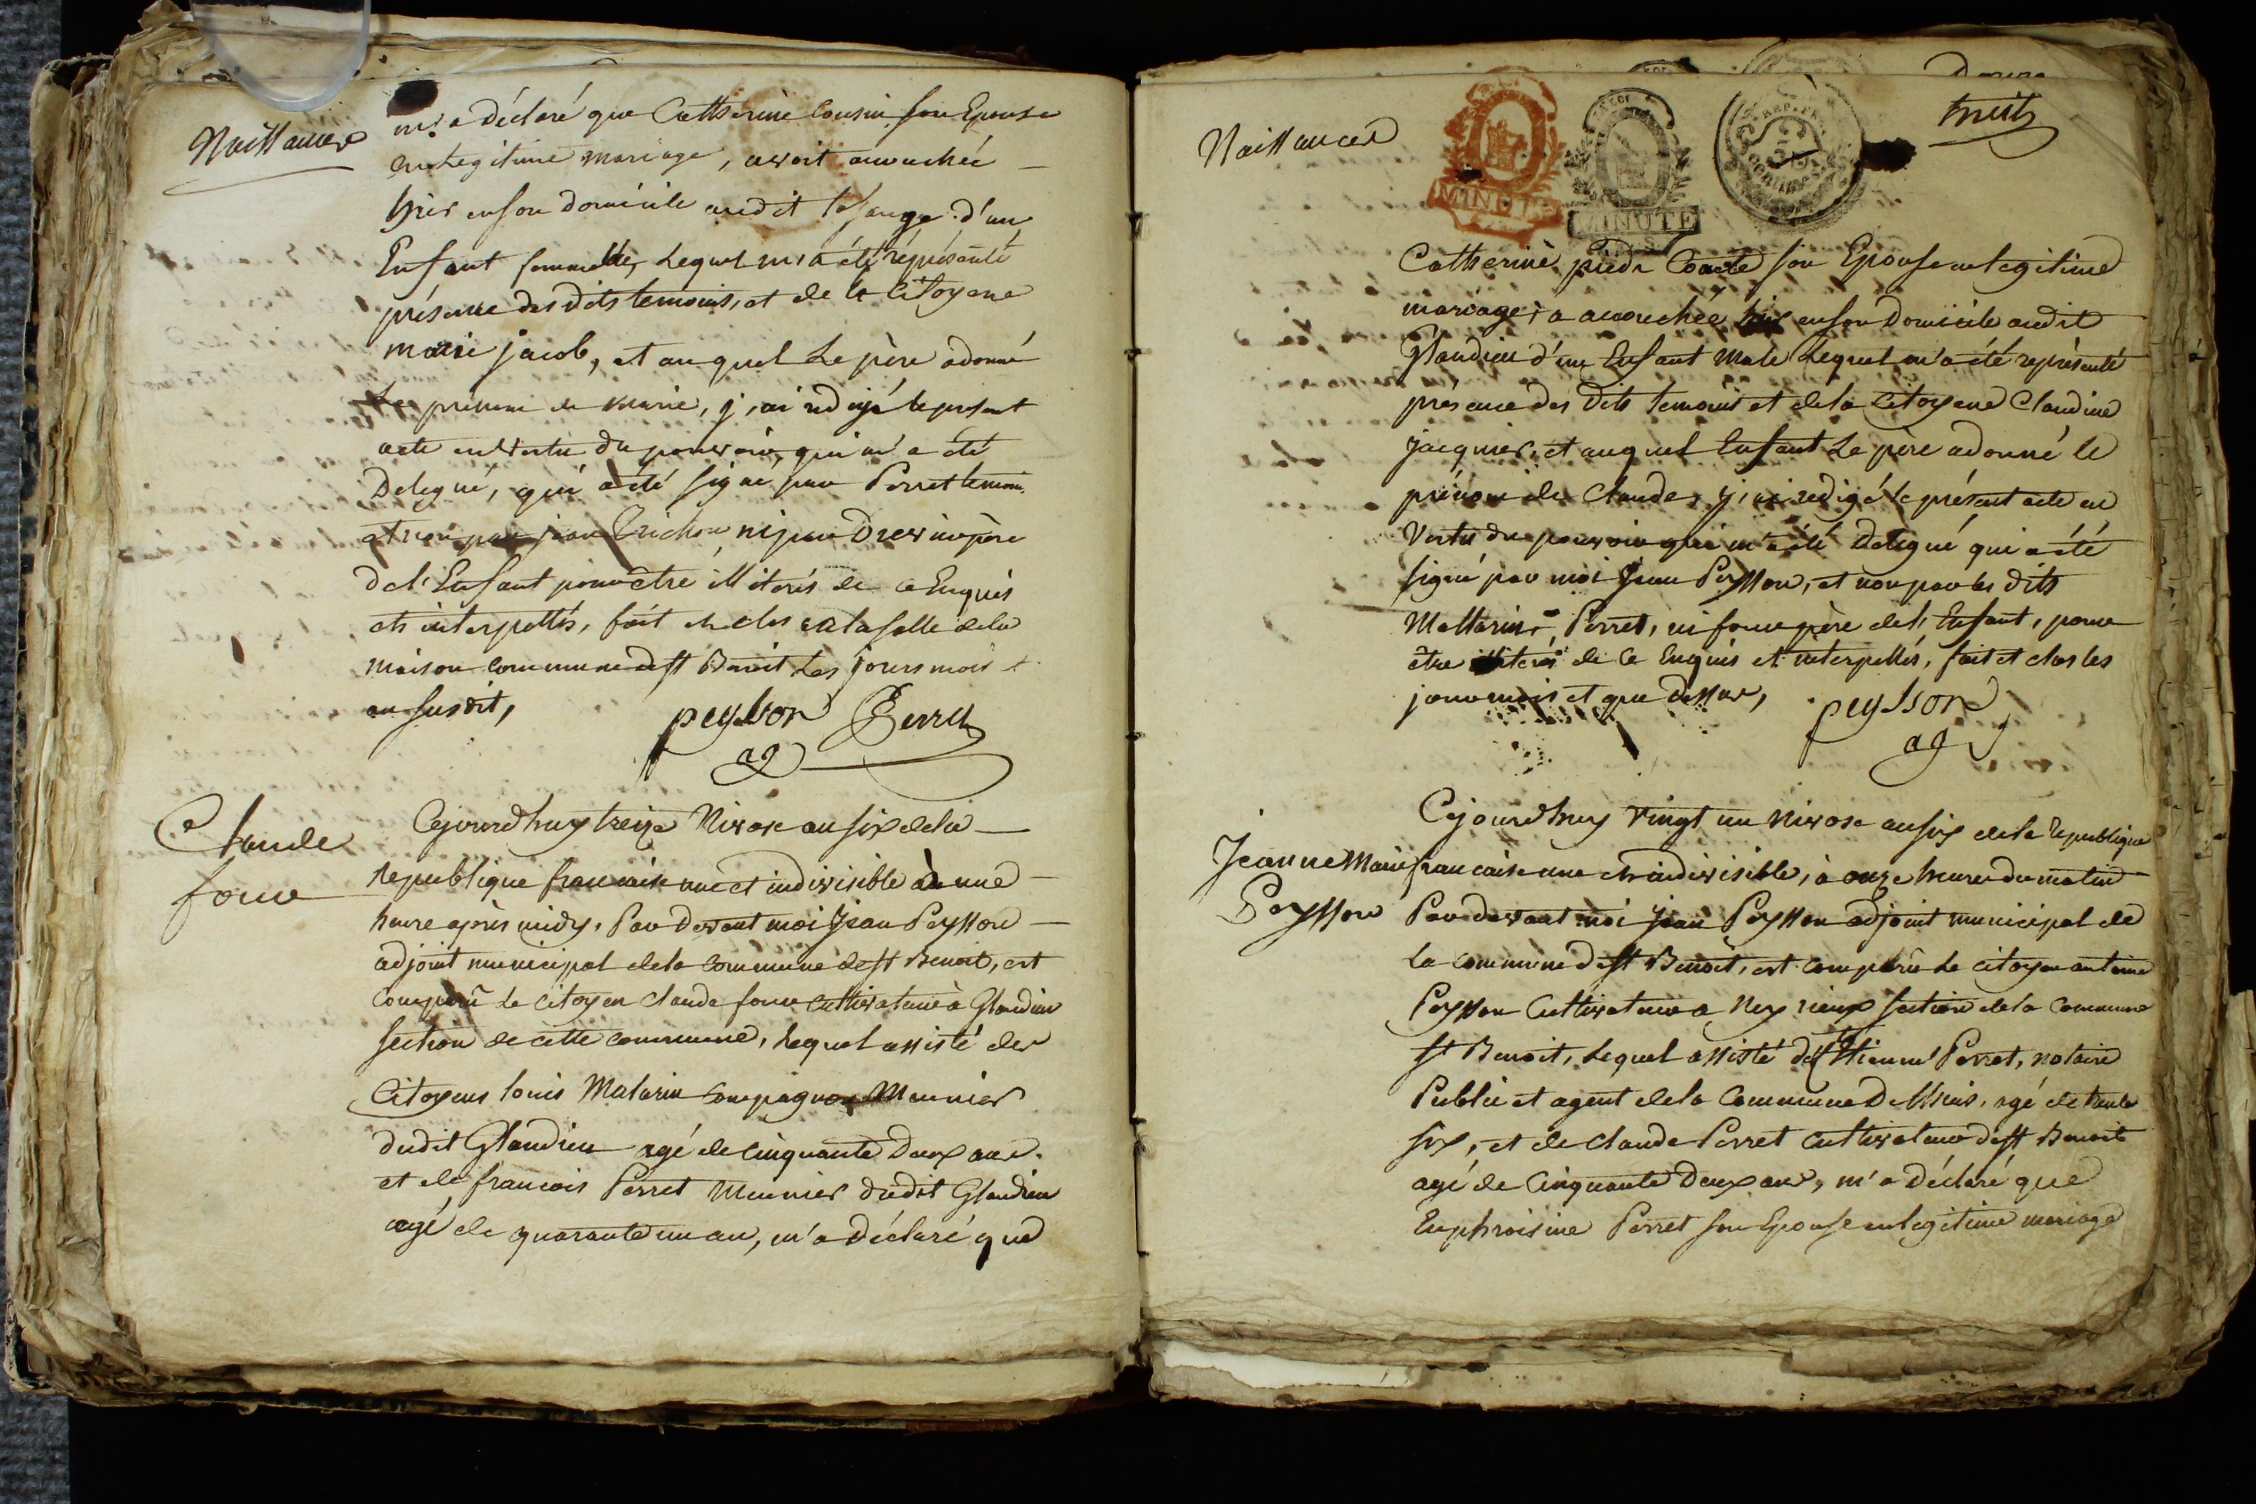 Naissances
m'a déclaré que Catherine Cousin son Epouse
en Legitime mariage, avoit accouchée
hier en son domicile audit d'un
Enfant femmelle, Lequel m'a été réprésenté
présence des dits temoins, et de la Citoyene
marie jacob, et auquel Le père a donné
Le prenom de marie, j'ai redigé le présent
acte en vertu du pouvoir, qui m'a été
Delegué, qui a été signé par Perret temoin
et non par jean Trichon ni par père
de l'Enfant pour être illiterés de ce Enquis
et interpellés, fait et clos en la salle de la
maison commune de St Benoit Les jours mois et
an susdit,
peysson Perret
ag
Claude
foux
Cejourd'huy treize Nivose an six de la
republique francaise une et indivisible à une
heure après midy, Par devant moi Jean Peysson
adjoint municipal de la commune de St Benoit, est
comparu Le Citoyen Claude cultivateur à Glandieu
section de cette commune, Lequel assisté des
Citoyens louis Matarin compagnon Meunier
dudit Glandieu agé de cinquante deux ans.
et de francois Perret Meunier dudit Glandieu
agé de quarante un an, m'a déclaré que
Douze
huit
Naissances
MINUTE
MINUTE
REP. FRA.
25
CENTIMES
Catherine son Epouse en legitime
mariage, a accouchée hier en son Domicile audit
Glandieu d'un Enfant male Lequel m'a été représenté
présence des dits temoins et de la Citoyene Claudine
jacquier, et auquel Enfant Le père a donné le
prénom de Claude, j'ai redigé le présent acte en
Vertu du pouvoir qui m'a été Delegué qui a été
signé par moi Jean Peysson, et non par les dits
Mattarin, Perret, ni père de l'Enfant, pour
être illiterés de ce Enquis et interpellés, fait et clos les
jour mois et que dessus,
peysson
ag
Jeanne Marie
Peysson
Cejourd'huy vingt un Nivose an six de la republique
francaise une et indivisible, à onze heures du matin
Par devant moi Jean Peysson adjoint municipal de
La commune de St Benoit, est comparu Le citoyen antoine
Peysson Cultivateur a section de la Commune
St Benoit, Lequel assisté d'Etienne Perret, notaire
Public et agent de la Commune agé de trente
six, et de Claude Perret Cultivateur de St Benoit
agé de Cinquante Deux ans, m'a déclaré que
Euphroisine Perret son Epouse en legitime mariage